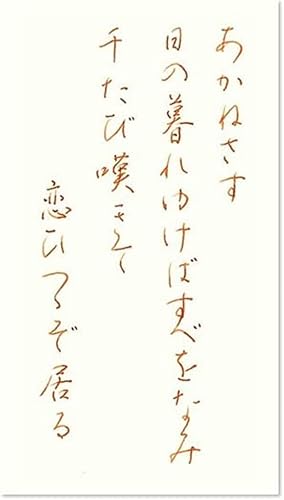 あかねさす
日の暮れゆけばすべをなみ
千たび嘆きて
恋ひつゝぞ居る